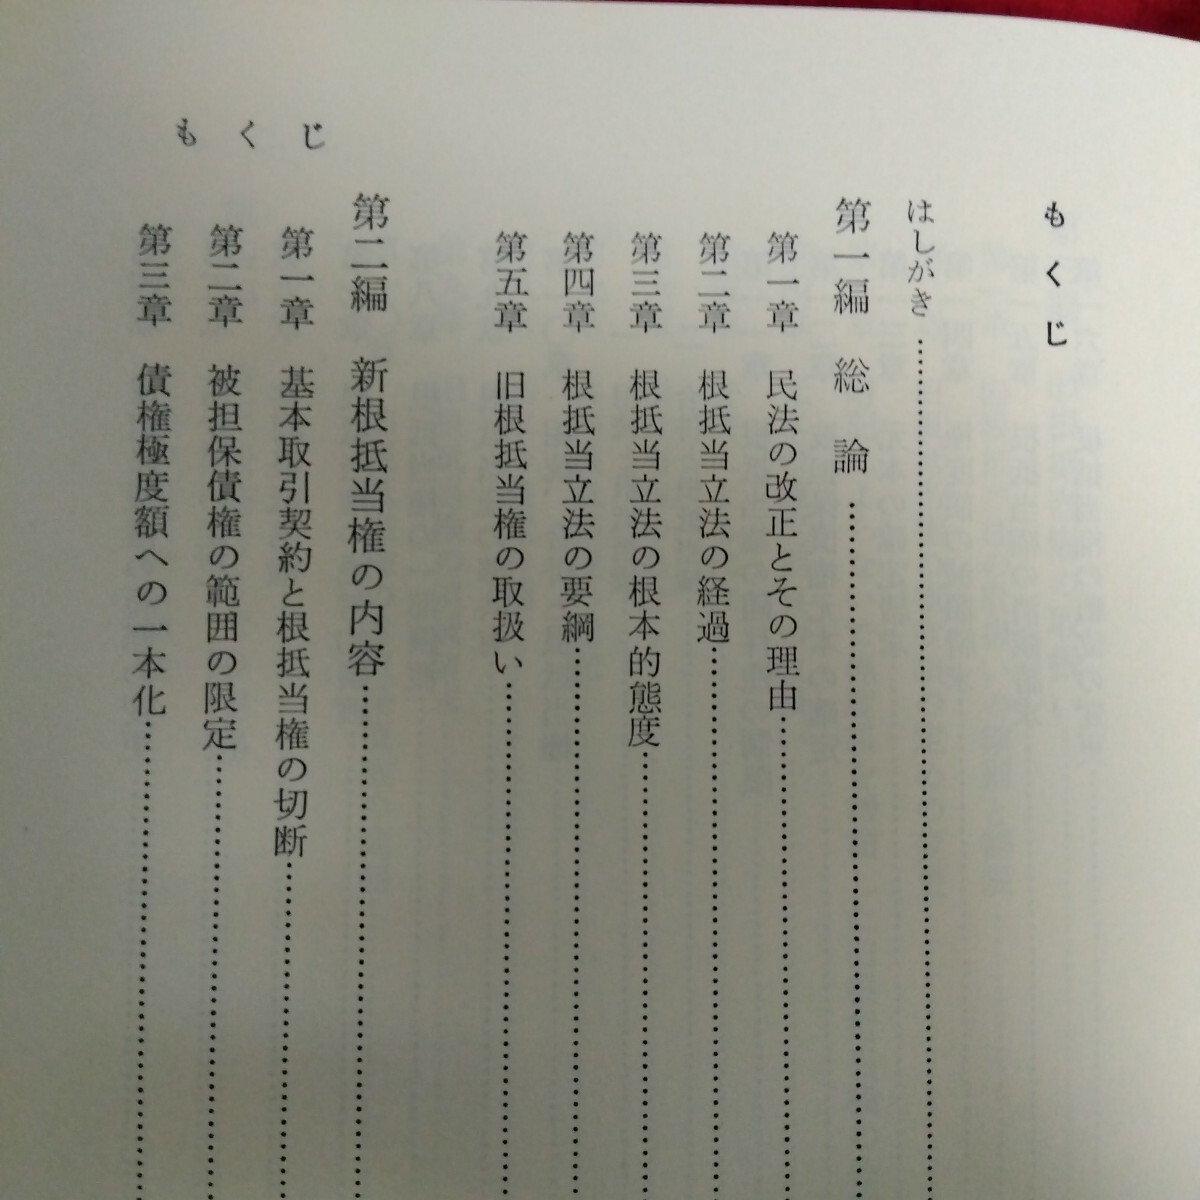 もくじ
はしがき……………………
第一編　総　論……………………
第一章　民法の改正とその理由……………………
第二章　根抵当立法の経過……………………
第三章　根抵当立法の根本的態度……………………
第四章　根抵当立法の要綱……………………
第五章　旧根抵当権の取扱い……………………
第二編　新根抵当権の内容……………………
第一章　基本取引契約と根抵当権の切断……………………
第二章　被担保債権の範囲の限定……………………
第三章　債権極度額への一本化……………………
もくじ